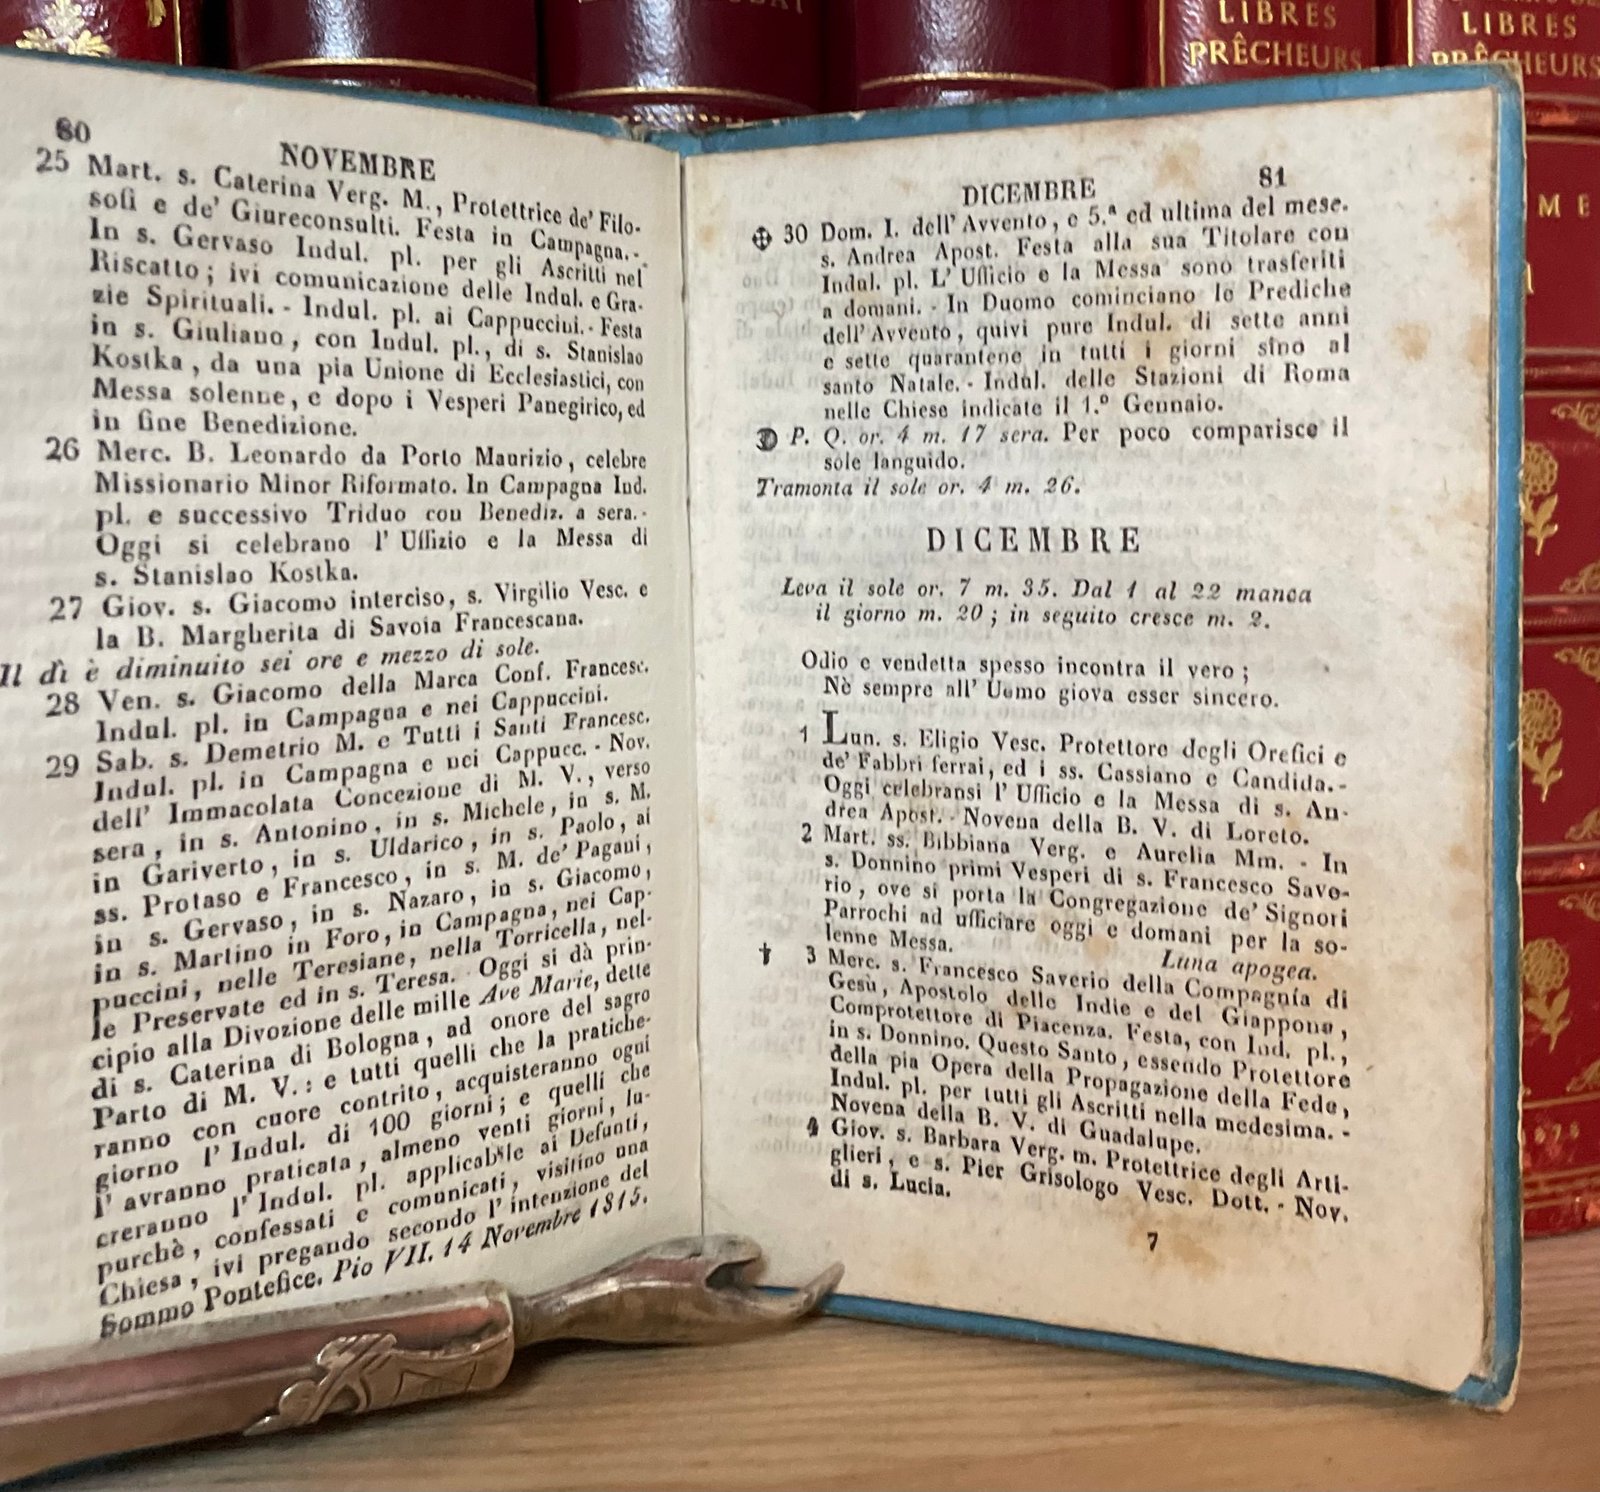 LIBRES
PRÊCHEURS
LIBRES
PRÊCHEURS
80
NOVEMBRE
25 Mart. s. Caterina Verg. M., Protettrice de' Filo-
sofi e de' Giureconsulti. Festa in Campagna.-
In s. Gervaso Indul. pl. per gli Ascritti nel
Riscatto; ivi comunicazione delle Indul. e Gra-
zie Spirituali. - Indul. pl. ai Cappuccini. - Festa
in s. Giuliano, con Indul. pl., di s. Stanislao
Kostka, da una pia Unione di Ecclesiastici, con
Messa solenne, e dopo i Vesperi Panegirico, ed
in fine Benedizione.
26 Merc. B. Leonardo da Porto Maurizio, celebre
Missionario Minor Riformato. In Campagna Ind.
pl. e successivo Triduo con Benediz. a sera.-
Oggi si celebrano l' Uffizio e la Messa di
s. Stanislao Kostka.
27 Giov. s. Giacomo interciso, s. Virgilio Vesc. e
la B. Margherita di Savoia Francescana.
Il dì è diminuito sei ore e mezzo di sole.
28 Ven. s. Giacomo della Marca Conf. Francesc.
Indul. pl. in Campagna e nei Cappuccini.
29 Sab. s. Demetrio M. e Tutti i Santi Francesc.
Indul. pl. in Campagna e nei Cappucc. - Nov.
dell' Immacolata Concezione di M. V., verso
sera, in s. Antonino, in s. Michele, in s. M.
in Gariverto, in s. Uldarico, in s. Paolo, ai
ss. Protaso e Francesco, in s. M. de' Pagani,
in s. Gervaso, in s. Nazaro, in s. Giacomo,
in s. Martino in Foro, in Campagna, nei Cap-
puccini, nelle Teresiane, nella Torricella, nel-
le Preservate ed in s. Teresa. Oggi si dà prin-
cipio alla Divozione delle mille Ave Marie, dette
di s. Caterina di Bologna, ad onore del sagro
Parto di M. V.: e tutti quelli che la pratiche-
ranno con cuore contrito, acquisteranno ogni
giorno l' Indul. di 100 giorni; e quelli che
l' avranno praticata, almeno venti giorni, lu-
creranno l' Indul. pl. applicabile ai Defunti,
purchè, confessati e comunicati, visitino una
Chiesa, ivi pregando secondo l' intenzione del
Sommo Pontefice. Pio VII. 14 Novembre 1815.
DICEMBRE
81
30 Dom. I. dell' Avvento, e 5.ª ed ultima del mese.
s. Andrea Apost. Festa alla sua Titolare con
Indul. pl. L' Ufficio e la Messa sono trasferiti
a domani. - In Duomo cominciano le Prediche
dell' Avvento, quivi pure Indul. di sette anni
e sette quarantene in tutti i giorni sino al
santo Natale. - Indul. delle Stazioni di Roma
nelle Chiese indicate il 1.º Gennaio.
P. Q. or. 4 m. 17 sera. Per poco comparisce il
sole languido.
Tramonta il sole or. 4 m. 26.
DICEMBRE
Leva il sole or. 7 m. 35. Dal 1 al 22 manca
il giorno m. 20; in seguito cresce m. 2.
Odio e vendetta spesso incontra il vero;
Nè sempre all' Uomo giova esser sincero.
1 Lun. s. Eligio Vesc. Protettore degli Orefici e
de' Fabbri ferrai, ed i ss. Cassiano e Candida.-
Oggi celebransi l' Ufficio e la Messa di s. An-
drea Apost. - Novena della B. V. di Loreto.
2 Mart. ss. Bibbiana Verg. e Aurelia Mm. - In
s. Donnino primi Vesperi di s. Francesco Save-
rio, ove si porta la Congregazione de' Signori
Parrochi ad ufficiare oggi e domani per la so-
lenne Messa. Luna apogea.
† 3 Merc. s. Francesco Saverio della Compagnía di
Gesù, Apostolo delle Indie e del Giappone,
Comprotettore di Piacenza. Festa, con Ind. pl.,
in s. Donnino. Questo Santo, essendo Protettore
della pia Opera della Propagazione della Fede,
Indul. pl. per tutti gli Ascritti nella medesima. -
Novena della B. V. di Guadalupe.
4 Giov. s. Barbara Verg. m. Protettrice degli Arti-
glieri, e s. Pier Grisologo Vesc. Dott. - Nov.
di s. Lucia.
7